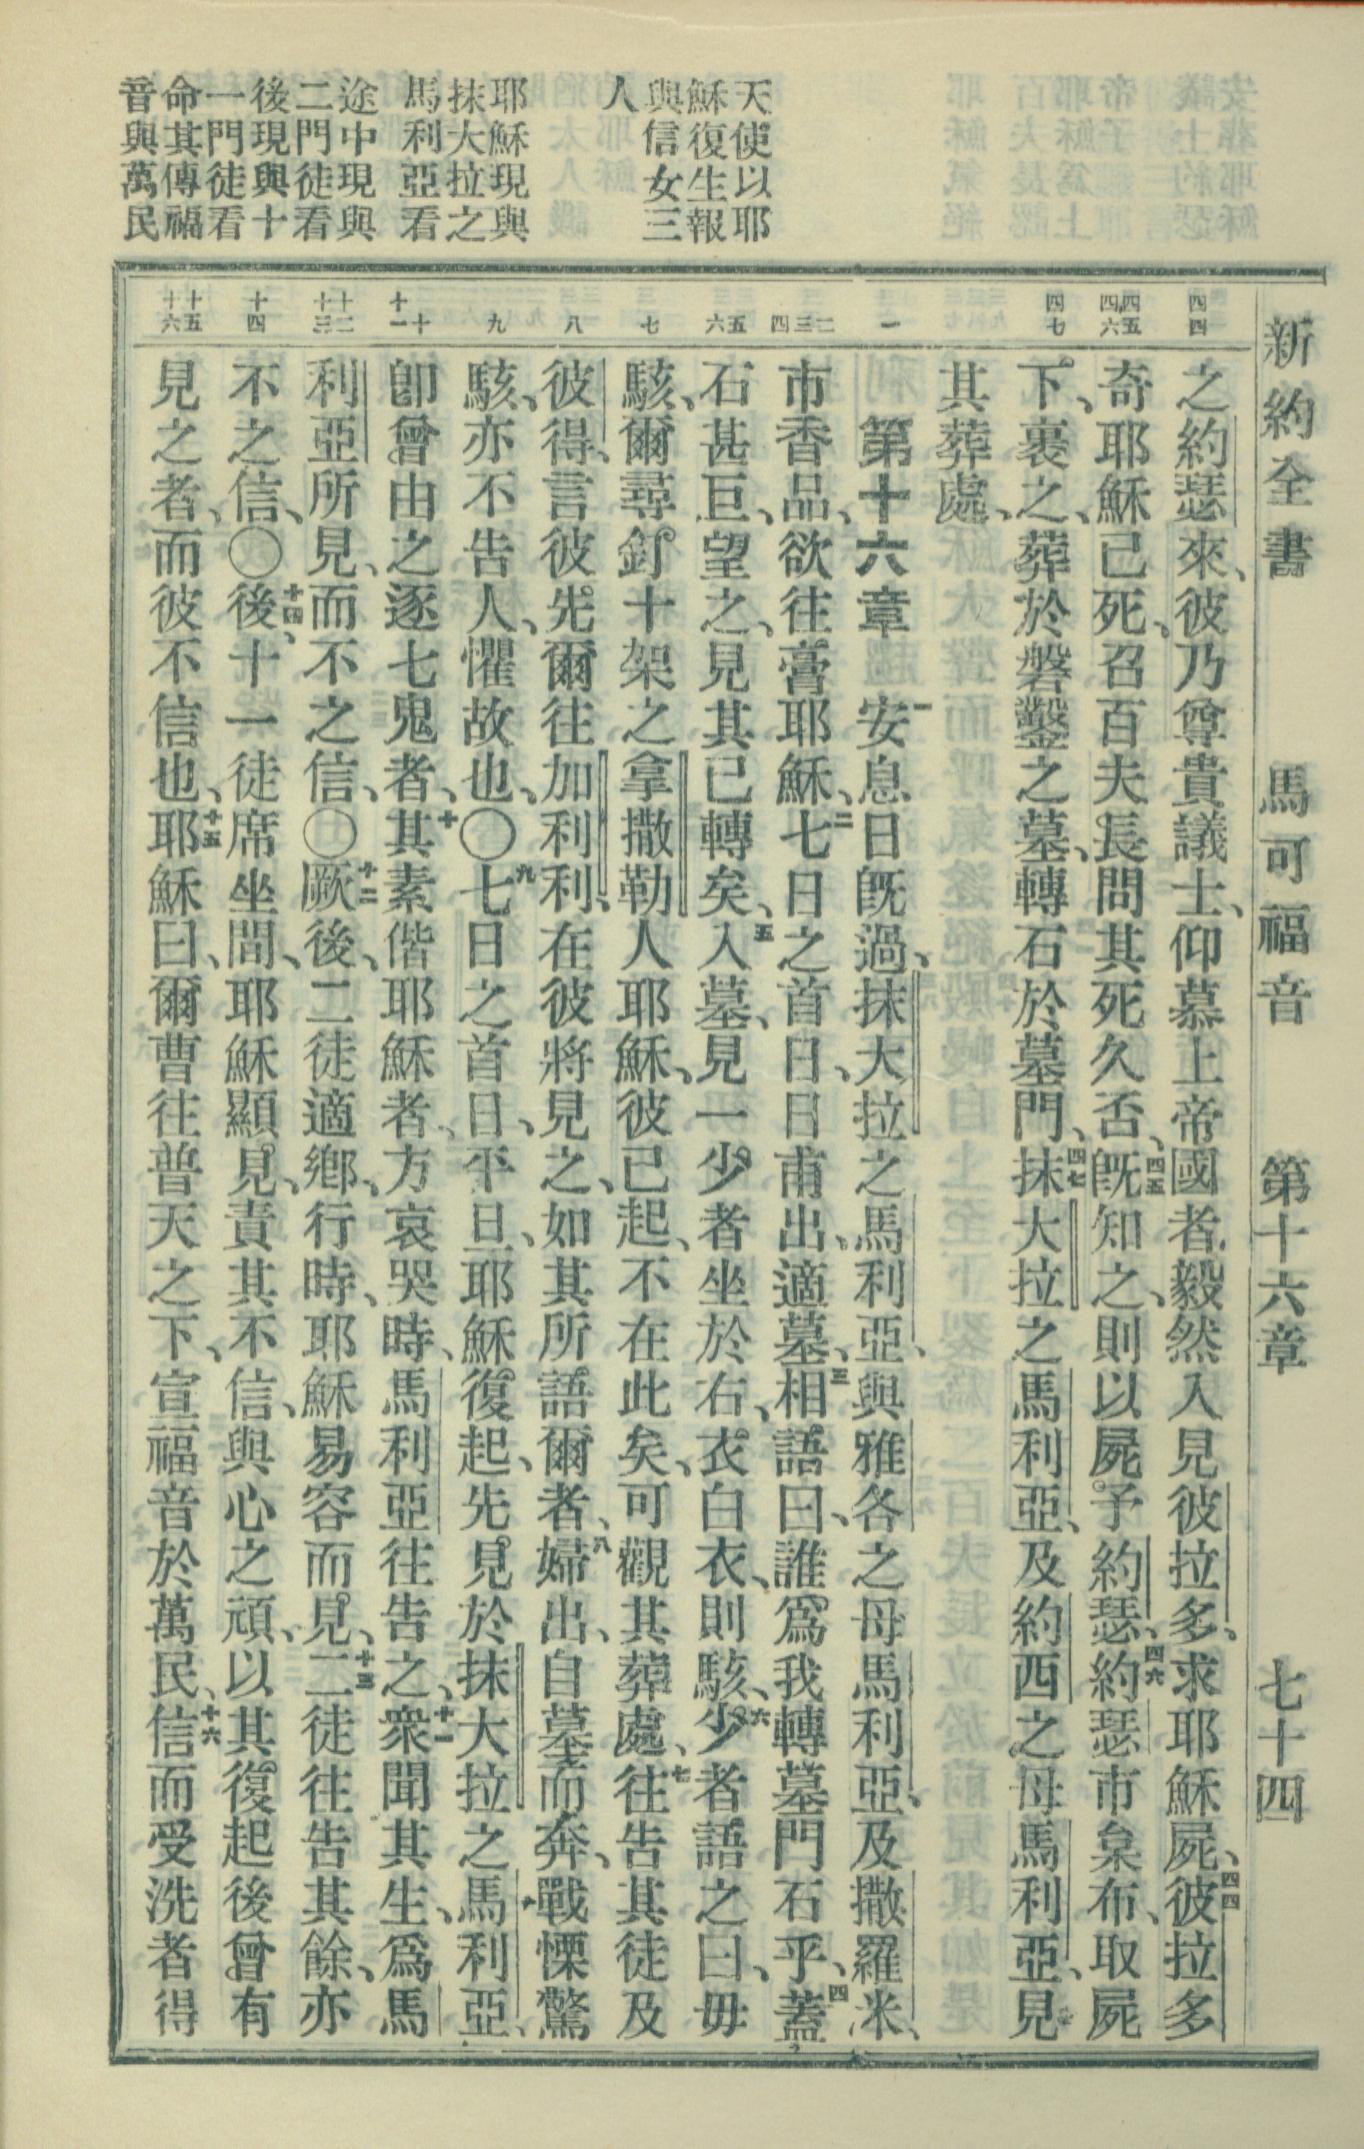 新約全書　馬可福音　第十六章　七十四
天使以耶
穌復生報
與信女三
人
耶穌現與
抹大拉之
馬利亞看
途中現與
二門徒看
後現與十
一門徒看
命其傳福
音與萬民
四四
四五
四六
四七
一
二
三
四
五
六
七
八
九
十
十一
十二
十三
十四
十五
十六
之約瑟來、彼乃尊貴議士、仰慕上帝國者、毅然入見彼拉多、求耶穌屍、四四彼拉多
奇耶穌已死、召百夫長問其死久否、四五旣知之、則以屍予約瑟、四六約瑟市枲布、取屍
下、裹之、葬於磐鑿之墓、轉石於墓門、四七抹大拉之馬利亞、及約西之母馬利亞、見
其葬處、
第十六章　一安息日旣過、抹大拉之馬利亞、與雅各之母馬利亞、及撒羅米、
市香品、欲往膏耶穌、二七日之首日、日甫出、適墓、三相語曰、誰爲我轉墓門石乎、四蓋
石甚巨、望之、見其已轉矣、五入墓、見一少者坐於右、衣白衣、則駭、六少者語之曰、毋
駭、爾尋釘十架之拿撒勒人耶穌、彼已起、不在此矣、可觀其葬處、七往告其徒及
彼得、言彼先爾往加利利、在彼將見之、如其所語爾者、八婦出、自墓而奔、戰慄驚
駭、亦不告人、懼故也、〇九七日之首日、平旦、耶穌復起、先見於抹大拉之馬利亞、
卽曾由之逐七鬼者、十其素偕耶穌者、方哀哭時、馬利亞往告之、十一衆聞其生、爲馬
利亞所見、而不之信、〇十二厥後、二徒適鄕、行時、耶穌易容而見、十三二徒往告其餘、亦
不之信、〇十四後、十一徒席坐間、耶穌顯見、責其不信、與心之頑、以其復起後曾有
見之者、而彼不信也、十五耶穌曰、爾曹往普天之下、宣福音於萬民、十六信而受洗者得